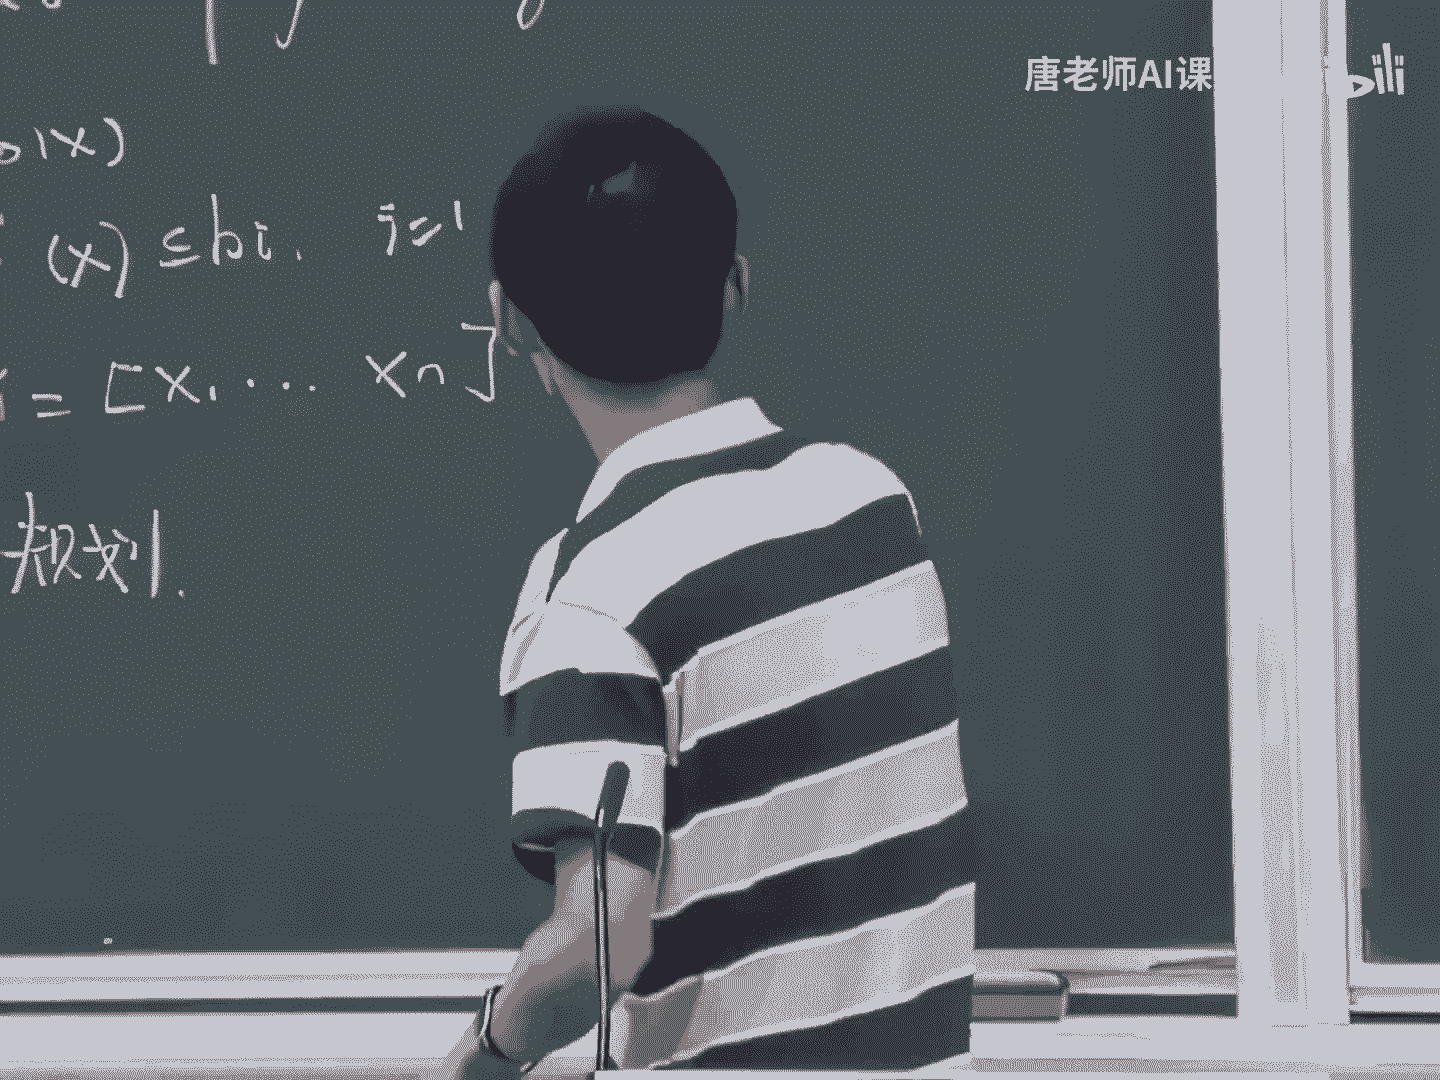 唐老师AI课
bili
(x)
(x) ≤ bi, i=1
= [x₁ ··· xn]
规划.